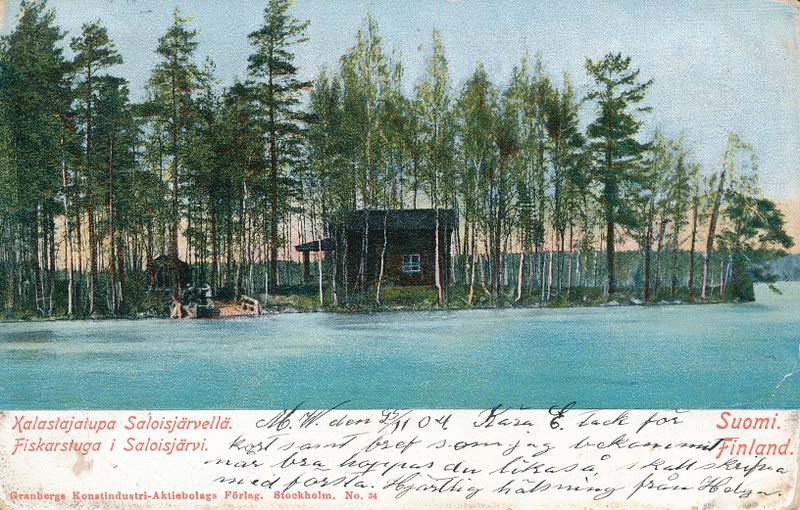 Kalastajatupa Saloisjärvellä.
Fiskarstuga i Saloisjärvi.
M. W. den 5/11 04 Kära E. tack för
kort samt bref som jag bekommit
mår bra hoppas du likaså, skall skrifva
med första. Hjärtlig hälsning från Helga.
Suomi.
Finland.
Granbergs Konstindustri-Aktiebolags Förlag. Stockholm. No. 34